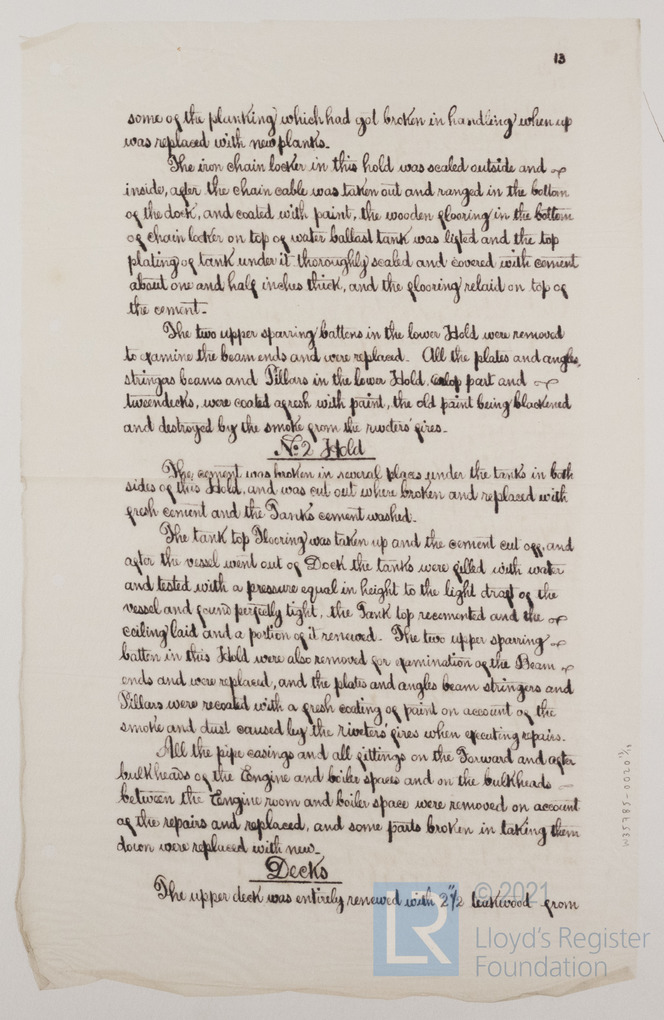 13
some of the planking which had got broken in handling when up
was replaced with new planks.
The iron chain locker in this hold was scaled outside and
inside, after the chain cable was taken out and ranged in the bottom
of the dock, and coated with paint, the wooden flooring in the bottom
of chain locker on top of water ballast tank was lifted and the top
plating of tank under it thoroughly scaled and covered with cement
about one and half inches thick, and the flooring relaid on top of
the cement.
The two upper sparring battens in the lower Hold were removed
to examine the beam ends and were replaced. All the plates and angles,
stringers beams and Pillars in the lower Hold, orlop part and
tweendecks, were coated afresh with paint, the old paint being blackened
and destroyed by the smoke from the riveters' fires.
No 2 Hold
The cement was broken in several places under the tanks in both
sides of this Hold, and was cut out where broken and replaced with
fresh cement and the Tanks cement washed.
The tank top Flooring was taken up and the cement cut off, and
after the vessel went out of Dock the tanks were filled with water
and tested with a pressure equal in height to the light draft of the
vessel and found perfectly tight, the Tank top recemented and the
ceiling laid and a portion of it renewed. The two upper sparring
batten in this Hold were also removed for examination of the Beam
ends and were replaced, and the plates and angles beam stringers and
Pillars were recoated with a fresh coating of paint on account of the
smoke and dust caused by the riveters' fires when executing repairs.
All the pipe casings and all fittings on the Forward and after
bulkheads of the Engine and boiler spaces and on the bulkheads
between the Engine room and boiler space were removed on account
of the repairs and replaced, and some parts broken in taking them
down were replaced with new.
Decks
The upper deck was entirely renewed with 2"1/2 teakwood from
W35785-0020 13/19
© 2021
LR
Lloyd's Register
Foundation